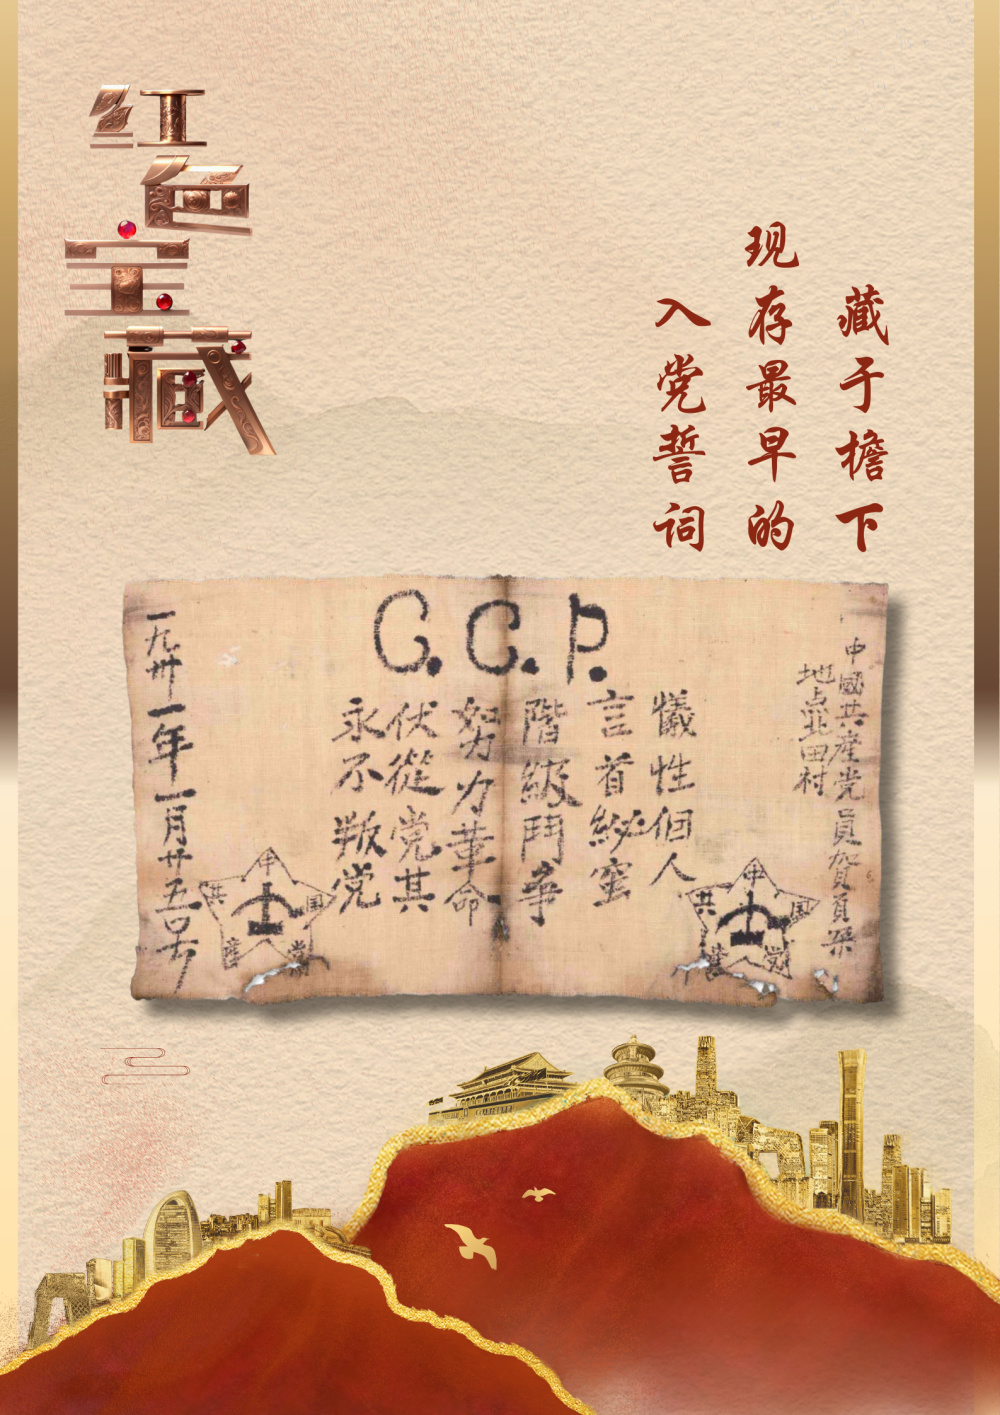 红色宝藏
藏于檐下
现存最早的
入党誓词
C.C.P.
中國共産党員賀頁朶
地点北田村
犠性個人
言首紗蜜
階級鬥争
努力革命
伏從党其
永不叛党
一九卅一年一月廿五号
中国共産党
中国共産党